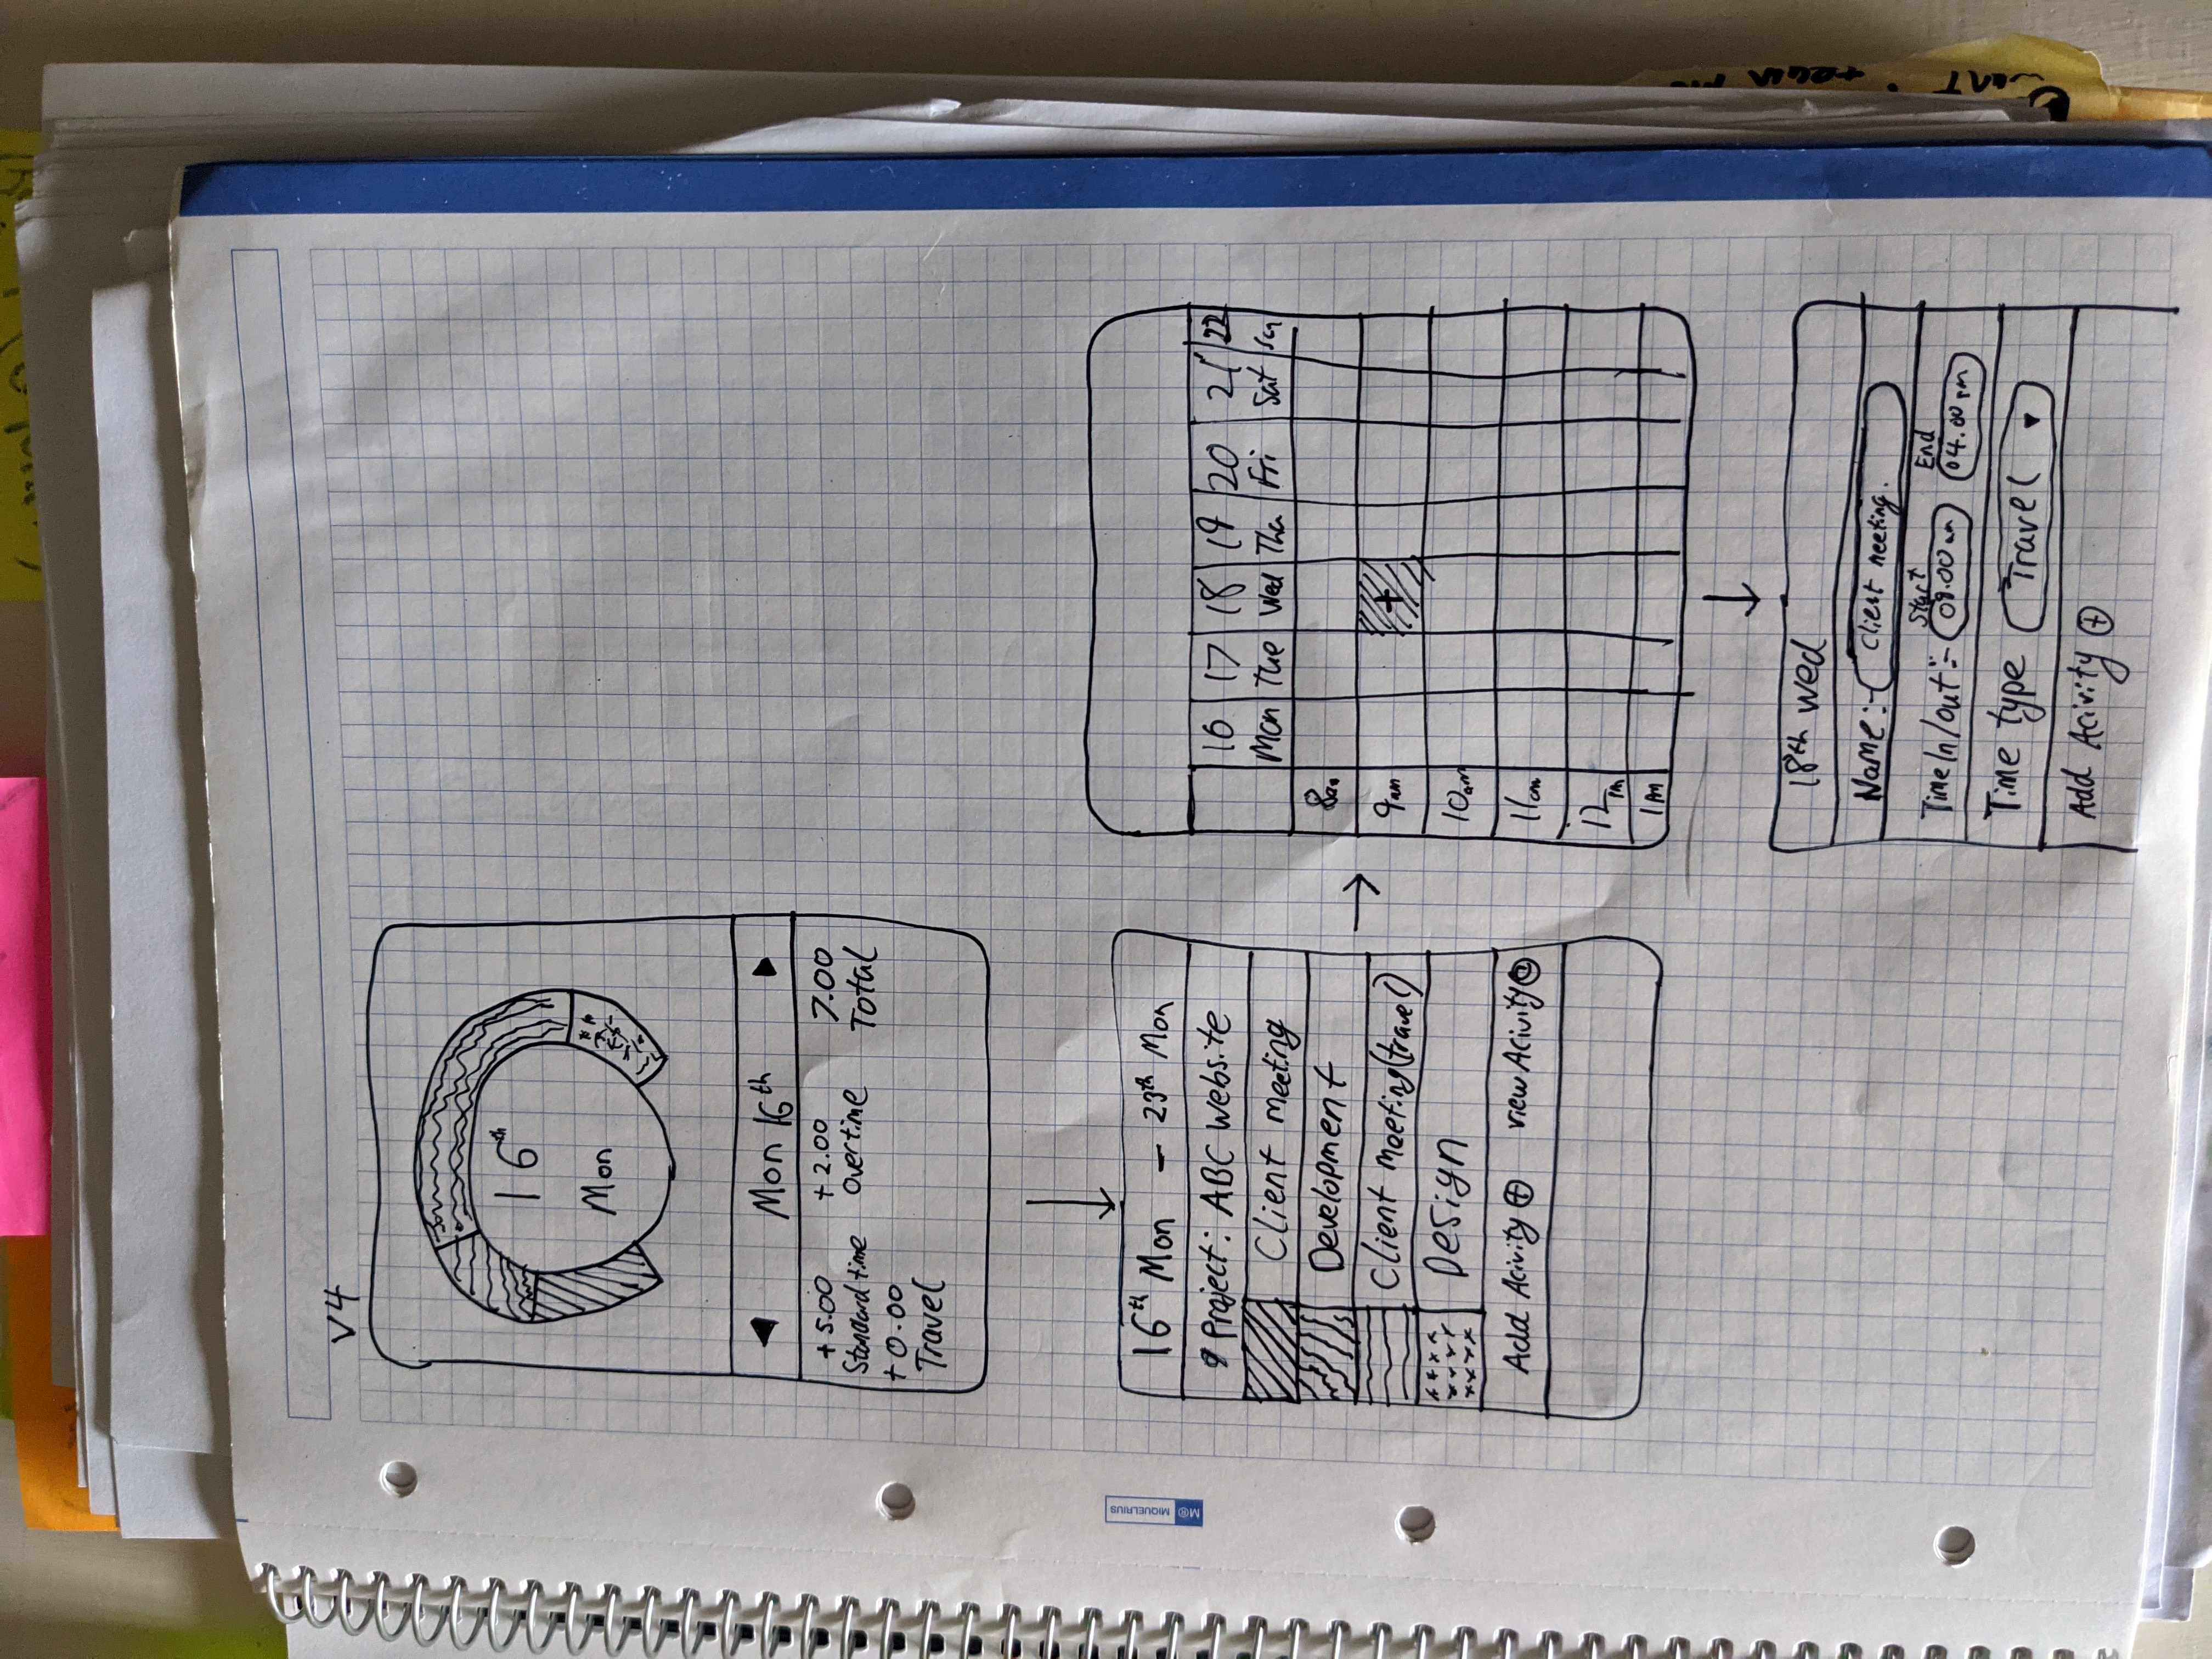 V4
16th
Mon
Mon 16th
+5.00 +2.00 7.00
Standard time Overtime Total
+0.00
Travel
16th Mon – 23th Mon
Project: ABC website
Client meeting
Development
Client meeting (travel)
Design
Add Acivity + view Acivity
16 17 18 19 20 21 22
Mon Tue Wed Thu Fri Sat Sun
8am
9am +
10am
11am
12pm
1pm
18th wed
Name:- Client meeting.
Start End
Time In/out:- 09.00 am 04.00 pm
Time type Travel
Add Acivity +
M® MIQUELRIUS